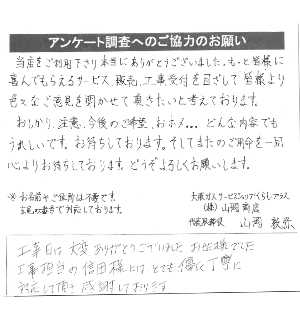 アンケート調査へのご協力のお願い
当店をご利用下さり本当にありがとうございました。もっと皆様に
喜んでもらえるサービス、販売、工事受付を目ざして皆様より
色々なご意見を聞かせて頂きたいと考えております。
おしかり、注意、今後のご希望、おホメ... どんな内容でも
うれしいです。お待ちしております。そしてまたのご用命を一同
心よりお待ちしております。どうぞよろしくお願いします。
※お名前やご住所は不要です。
大阪ガスサービスショップくらしプラス
(株)山岡商店
代表取締役 山岡
工事日は大変ありがとうございました お世話でした
工事担当の信田様にはとても優しく丁寧に
対応して頂き感謝しております